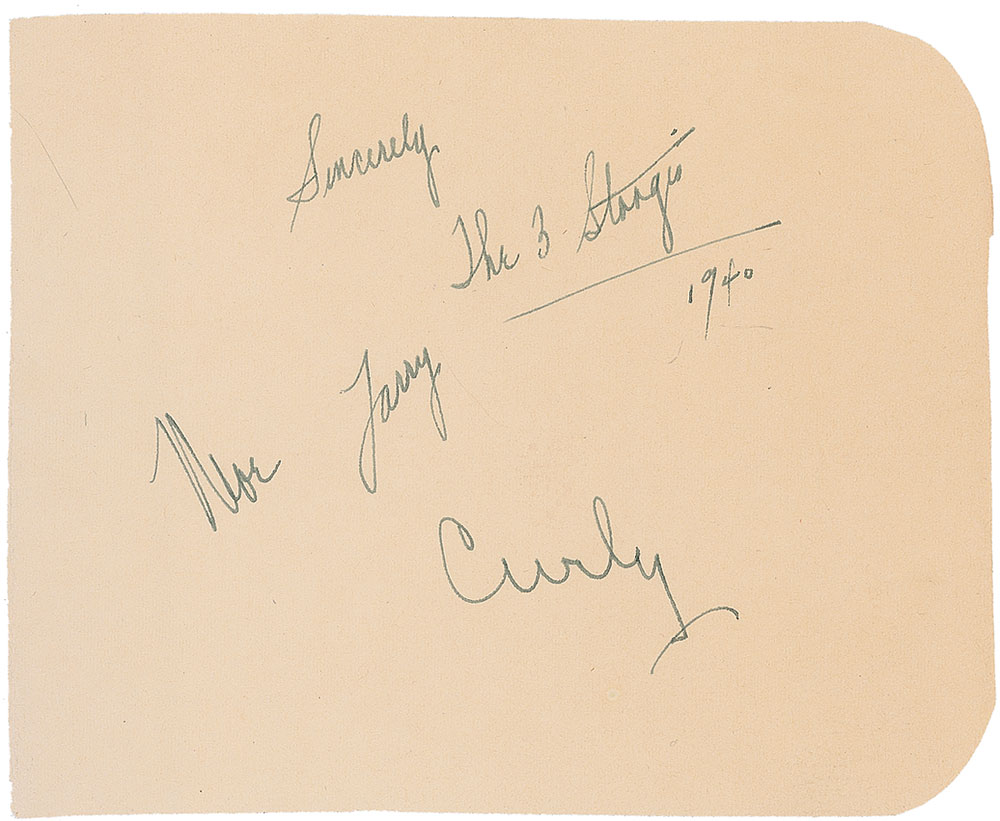 Sincerely
The 3 Stooges
1940
Moe Larry
Curly